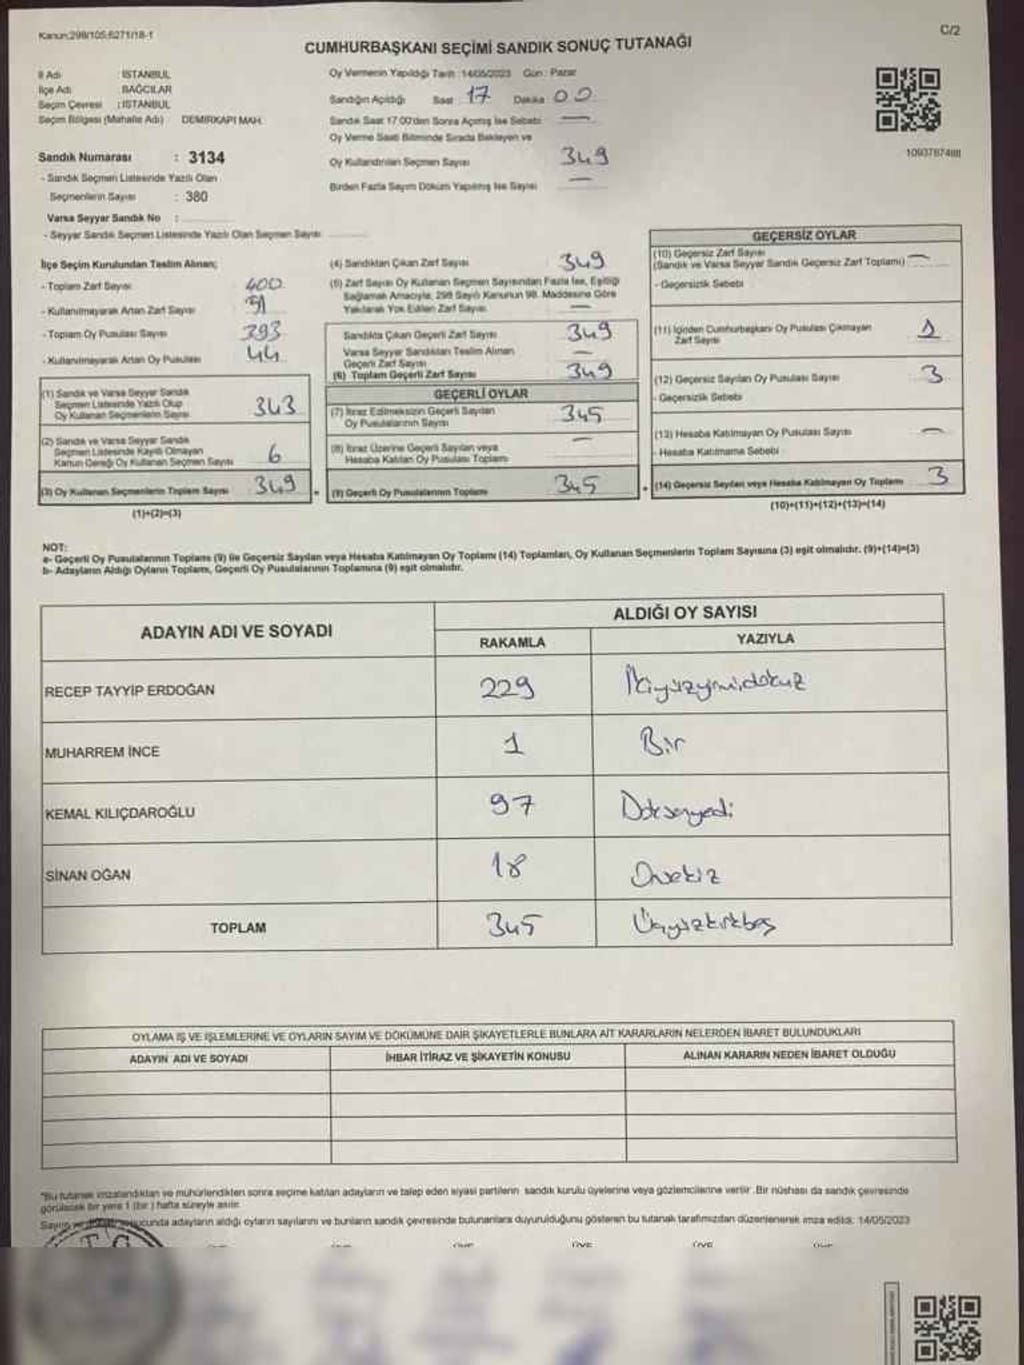 Kanun:298/105;6271/18-1
C/2
CUMHURBAŞKANI SEÇİMİ SANDIK SONUÇ TUTANAĞI
İl Adı : İSTANBUL
İlçe Adı : BAĞCILAR
Seçim Çevresi : İSTANBUL
Seçim Bölgesi (Mahalle Adı) : DEMİRKAPI MAH.
Sandık Numarası : 3134
- Sandık Seçmen Listesinde Yazılı Olan
Seçmenlerin Sayısı : 380
Varsa Seyyar Sandık No :
- Seyyar Sandık Seçmen Listesinde Yazılı Olan Seçmen Sayısı
Oy Vermenin Yapıldığı Tarih : 14/05/2023 Gün : Pazar
Sandığın Açıldığı Saat : 17 Dakika 00
Sandık Saat 17:00'den Sonra Açılmış İse Sebebi : —
Oy Verme Saati Bitiminde Sırada Bekleyen ve
Oy Kullandırılan Seçmen Sayısı 349
Birden Fazla Sayım Döküm Yapılmış İse Sayısı —
1093787488
İlçe Seçim Kurulundan Teslim Alınan;
- Toplam Zarf Sayısı 400
- Kullanılmayarak Artan Zarf Sayısı 51
- Toplam Oy Pusulası Sayısı 393
- Kullanılmayarak Artan Oy Pusulası 44
(1) Sandık ve Varsa Seyyar Sandık
Seçmen Listesinde Yazılı Olup
Oy Kullanan Seçmenlerin Sayısı 343
(2) Sandık ve Varsa Seyyar Sandık
Seçmen Listesinde Kayıtlı Olmayan
Kanun Gereği Oy Kullanan Seçmen Sayısı 6
(3) Oy Kullanan Seçmenlerin Toplam Sayısı 349
(1)+(2)=(3)
(4) Sandıktan Çıkan Zarf Sayısı 349
(5) Zarf Sayısı Oy Kullanan Seçmen Sayısından Fazla İse, Eşitliği
Sağlamak Amacıyla, 298 Sayılı Kanunun 98. Maddesine Göre
Yakılarak Yok Edilen Zarf Sayısı —
Sandıkta Çıkan Geçerli Zarf Sayısı 349
Varsa Seyyar Sandıktan Teslim Alınan
Geçerli Zarf Sayısı —
(6) Toplam Geçerli Zarf Sayısı 349
GEÇERLİ OYLAR
(7) İtiraz Edilmeksizin Geçerli Sayılan
Oy Pusulalarının Sayısı 345
(8) İtiraz Üzerine Geçerli Sayılan veya
Hesaba Katılan Oy Pusulası Toplamı —
= (9) Geçerli Oy Pusulalarının Toplamı 345
GEÇERSİZ OYLAR
(10) Geçersiz Zarf Sayısı
(Sandık ve Varsa Seyyar Sandık Geçersiz Zarf Toplamı) —
- Geçersizlik Sebebi
(11) İçinden Cumhurbaşkanı Oy Pusulası Çıkmayan
Zarf Sayısı 1
(12) Geçersiz Sayılan Oy Pusulası Sayısı 3
- Geçersizlik Sebebi
(13) Hesaba Katılmayan Oy Pusulası Sayısı —
- Hesaba Katılmama Sebebi
+ (14) Geçersiz Sayılan veya Hesaba Katılmayan Oy Toplamı 3
(10)+(11)+(12)+(13)=(14)
NOT:
a- Geçerli Oy Pusulalarının Toplamı (9) ile Geçersiz Sayılan veya Hesaba Katılmayan Oy Toplamı (14) Toplamları, Oy Kullanan Seçmenlerin Toplam Sayısına (3) eşit olmalıdır. (9)+(14)=(3)
b- Adayların Aldığı Oyların Toplamı, Geçerli Oy Pusulalarının Toplamına (9) eşit olmalıdır.
ADAYIN ADI VE SOYADI
ALDIĞI OY SAYISI
RAKAMLA YAZIYLA
RECEP TAYYİP ERDOĞAN 229 İkiyüzyirmidokuz
MUHARREM İNCE 1 Bir
KEMAL KILIÇDAROĞLU 97 Doksanyedi
SİNAN OĞAN 18 Onsekiz
TOPLAM 345 Üçyüzkırkbeş
OYLAMA İŞ VE İŞLEMLERİNE VE OYLARIN SAYIM VE DÖKÜMÜNE DAİR ŞİKAYETLERLE BUNLARA AİT KARARLARIN NELERDEN İBARET BULUNDUKLARI
ADAYIN ADI VE SOYADI İHBAR İTİRAZ VE ŞİKAYETİN KONUSU ALINAN KARARIN NEDEN İBARET OLDUĞU
"Bu tutanak imzalandıktan ve mühürlendikten sonra seçime katılan adayların ve talep eden siyasi partilerin sandık kurulu üyelerine veya gözlemcilerine verilir .Bir nüshası da sandık çevresinde
görülecek bir yere 1 (bir ) hafta süreyle asılır.
Sayım ve sonucunda adayların aldığı oyların sayılarını ve bunların sandık çevresinde bulunanlara duyurulduğunu gösteren bu tutanak tarafımızdan düzenlenerek imza edildi. 14/05/2023
T.C.